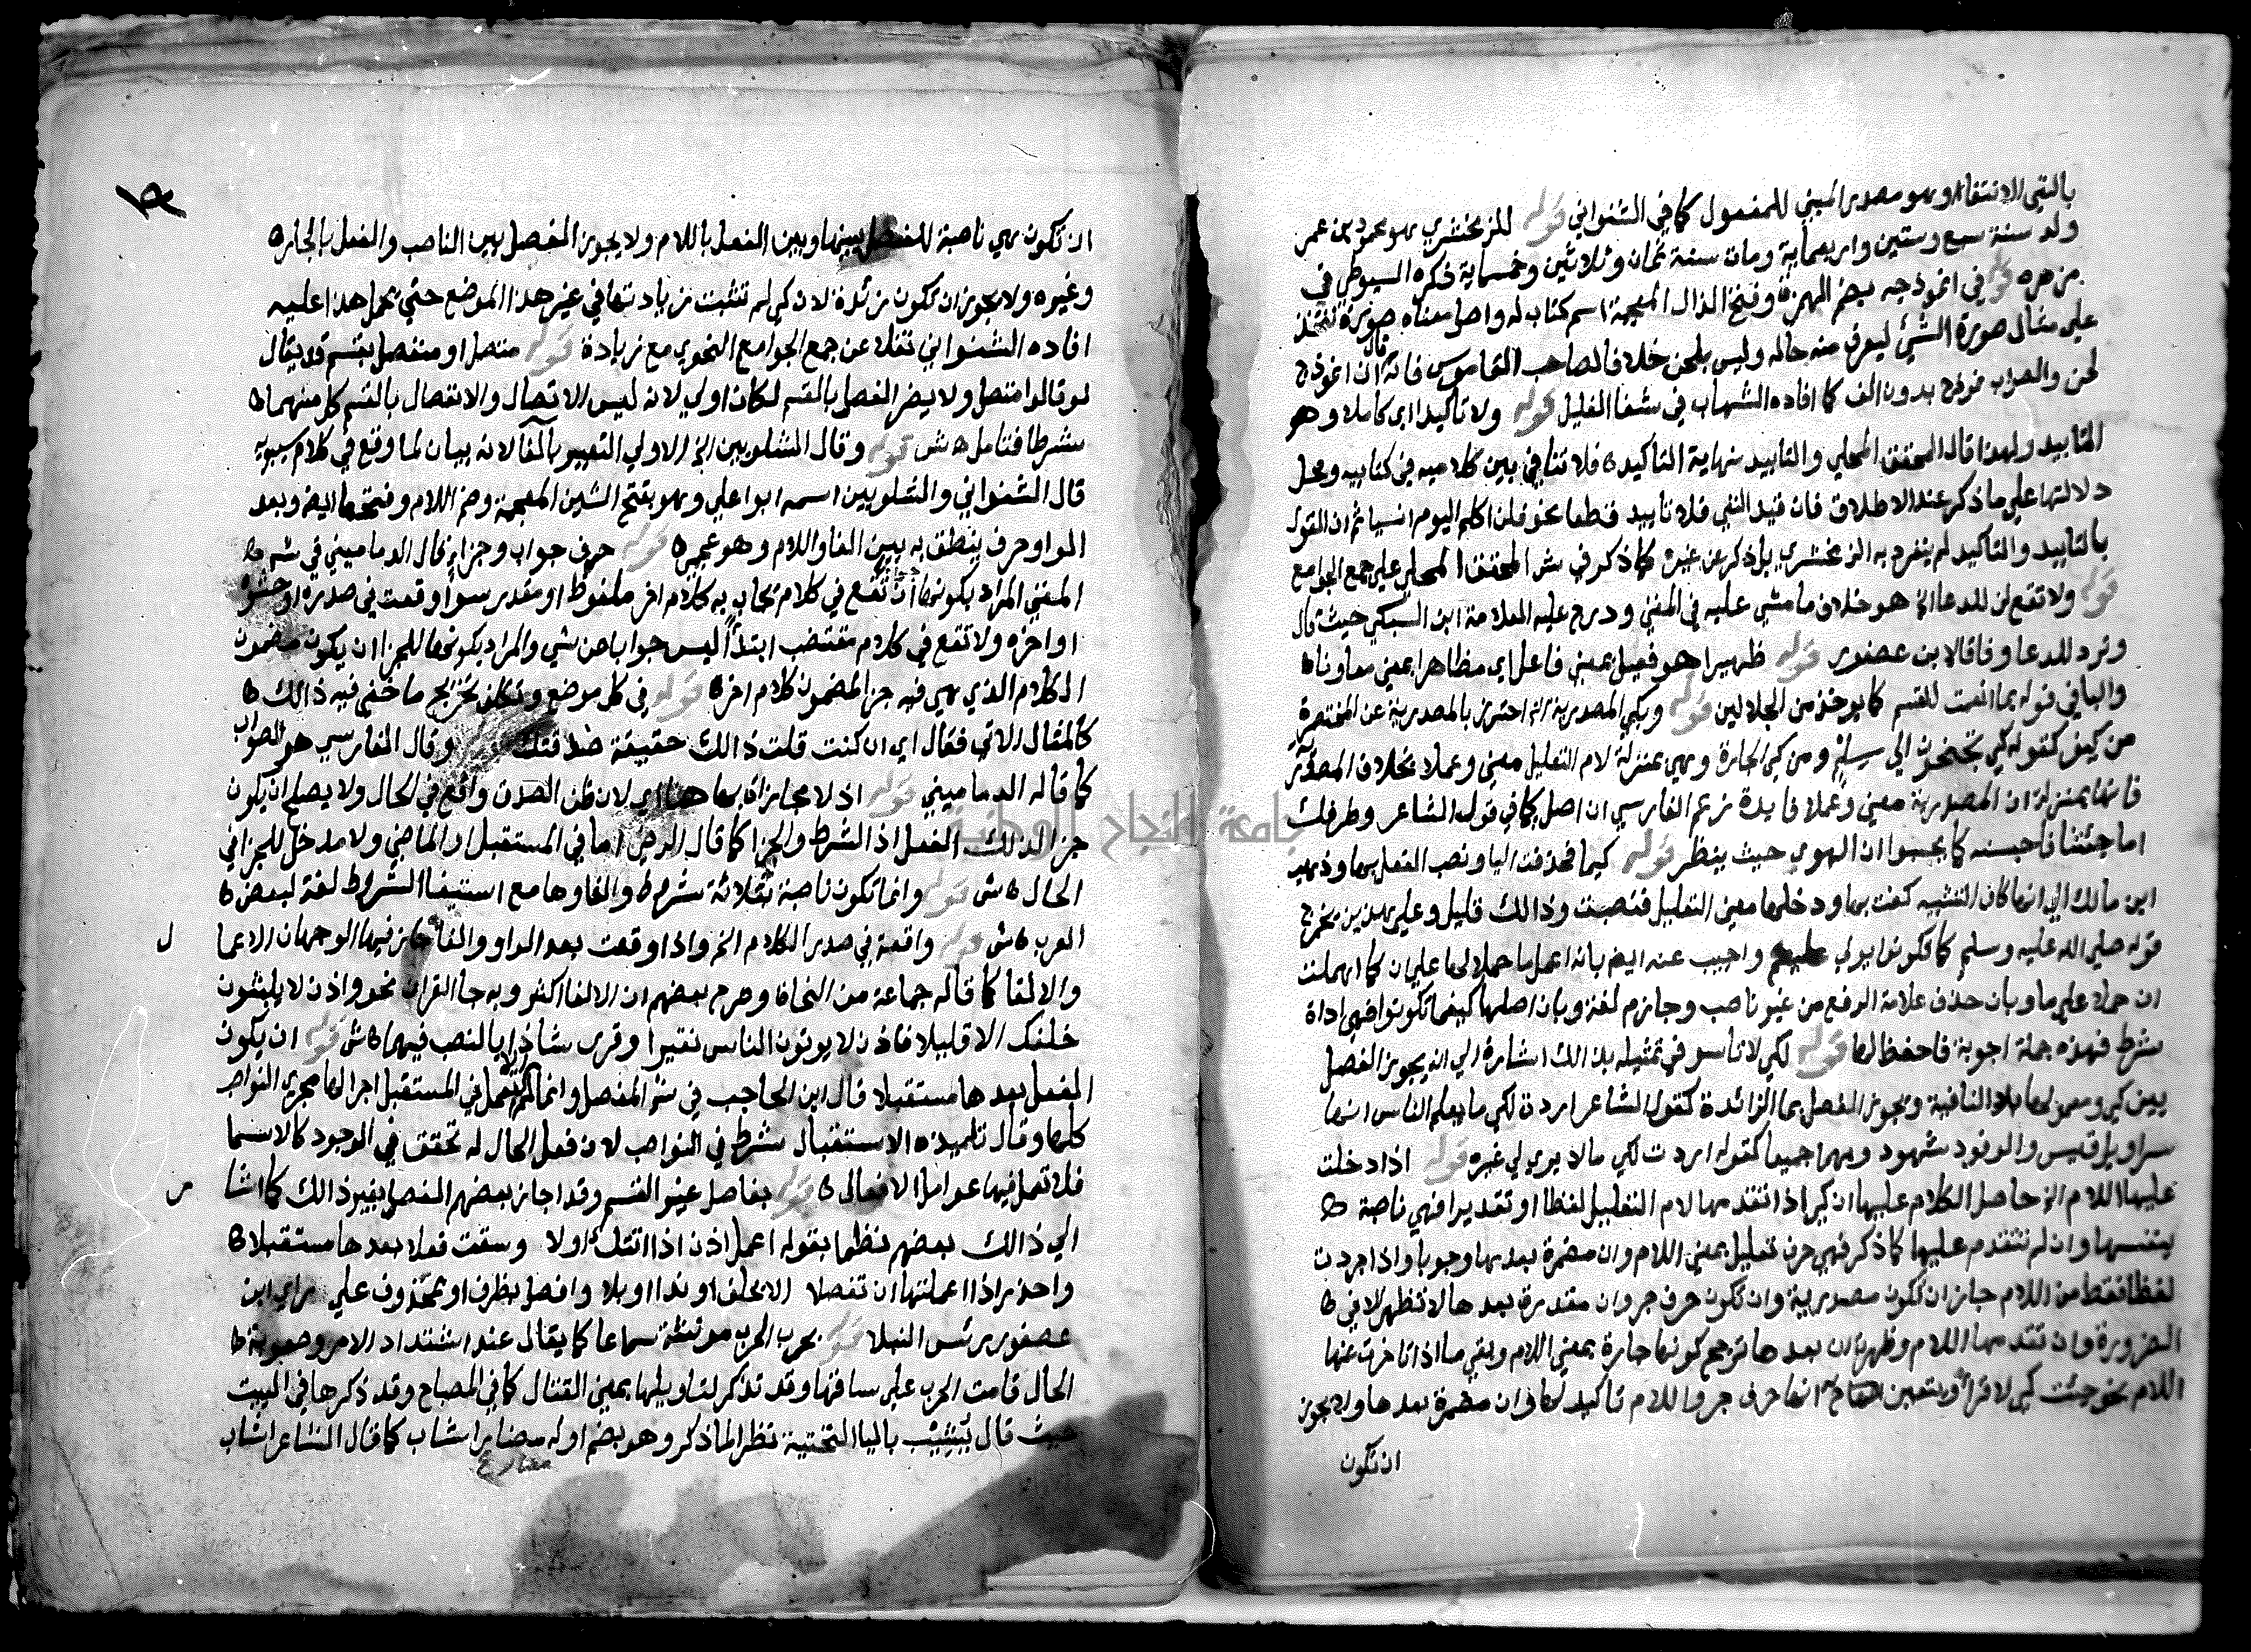 بالنفي الانتفا او هو مصدر المبني للمفعول كما في الشنواني قوله للزمخشري هو محمود بن عمر
ولد سنة سبع وستين واربعماية ومات سنة ثمان وثلاثين وخمساية ذكره السيوطي في
مزهره قوله في انموذجه بضم الهمزة وفتح الذال المعجمة اسم كتاب له واصل معناه صورة تتخذ
علي مثال صورة الشئ ليعرف منه حاله وليس بلحن خلافا لصاحب القاموس فانه قال ان انموذج
لحن والصواب نموذج بدون الف كما افاده الشهاب في شفا الغليل قوله ولا تاكيدا اي كاملا وهو
التابيد ولهذا قال المحقق المحلي والتابيد نهاية التاكيد ه فلا تنافي بين كلاميه في كتابيه ومحل
دلالتها علي ما ذكر عند الاطلاق فان قيد النفي فلا تابيد قطعا نحو فلن اكلم اليوم انسيا ثم ان القول
بالتابيد والتاكيد لم ينفرد به الزمخشري بل ذكر عن غيره كما ذكر في ش المحقق المحلي علي جمع الجوامع
قوله ولا تقع لن للدعا الخ هو خلاف ما مشي عليه في المغني ودرج عليه العلامة ابن السبكي حيث قال
وترد للدعا وفاقا لابن عصفور قوله ظهيرا هو فعيل بمعني فاعل اي مظاهرا بمعني معاونا ه
والبا في قوله بما انعمت للقسم كما يوخذ من الجلالين قوله وبكي المصدرية الخ احترز بالمصدرية عن المختصرة
من كيف كقوله كي تجنحون الي سلم ومن كي الجارة وهي بمنزلة لام التعليل معني وعملا بخلاف المصدرية
فانها بمنزلة ان المصدرية معني وعملا فايدة زعم الفارسي ان اصل كما في قول الشاعر وطرفك
اما جئتنا فاحبسنه كما يحسبوا ان الهوي حيث ينظر قوله كيما فحذفت اليا ونصب الفعل بها وذهب
ابن مالك الي انها كاف التشبيه كفت بما ودخلها معني التعليل فنصبت وذالك قليل وعلي هذين يخرج
قوله صلي الله عليه وسلم كما تكونوا يولي عليكم واجيب عنه ايضا بانه اعمل ما حملا لها علي ان كما اهملت
ان حملا علي ما وبان حذف علامة الرفع من غير ناصب وجازم لغة وبان اصلها كيفما تكونوا فهي اداة
شرط فهذه جملة اجوبة فاحفظها قوله لكي لا تاسو في تمثيله بذالك اشارة الي انه يجوز الفصل
بين كي ومعمولها بلا النافية ويجوز الفصل بما الزائدة كقول الشاعر اردت لكي ما يعلم الناس انها
سراويل قيس والوفود شهود وبهما جميعا كقوله اردت لكي ما لا يري لي غيره قوله اذا دخلت
عليها اللام الخ حاصل الكلام عليها ان كي اذا تقدمها لام التعليل لفظا او تقديرا فهي ناصبة ه
بنفسها وان لم تتقدم عليها كما ذكر فهي حرف تعليل بمعني اللام وان مضمرة بعدها وجوبا واذا جردت
لفظا فقط من اللام جاز ان تكون مصدرية وان تكون حرف جر وان مقدرة بعدها لا تظهر الا في ه
الضرورة وان تقدمها اللام وظهرت ان بعدها ترجح كونها جارة بمعني اللام وبقي ما اذا تاخرت عنها
اللام نحو جئت كي لاقرأ ويتعين انها حرف جر واللام تاكيد لها وان مضمرة بعدها ولا يجوز
ان تكون
ان تكون هي ناصبة للفصل بينها وبين الفعل باللام ولا يجوز الفصل بين الناصب والفعل بالجار ه
وغيره ولا يجوز ان تكون زئدة لان كي لم تثبت زيادتها في غير هذا الموضع حتي يحمل هذا عليه
افاده الشنواني نقلا عن جمع الجوامع النحوي مع زيادة قوله متصل او منفصل بقسم قد يقال
لو قالوا متصل ولا يضر الفصل بالقسم لكان اولي لانه ليس الاتصال والانفصال بالقسم كل منهما ه
شرطا فتامل ه ش قوله وقال الشلوبين الخ الاولي التعبير بالفا لانه بيان لما وقع في كلام سيبويه
قال الشنواني والشلوبين اسمه ابوا علي وهو بفتح الشين المعجمة وضم اللام وفتحها ايضا وبعد
الواو حرف ينطق به بين الفا واللام وهو عجمي ه قوله حرف جواب وجزاء قال الدماميني في ش ه
المغني المراد بكونها ان تقع في كلام مجاب به كلام اخر ملفوظ او مقدر سوا وقعت في صدره او حشوه
او اخره ولا تقع في كلام مقتضب ابتدأ ليس جوابا عن شي والمراد بكونها للجزا ان يكون مضمون
الكلام الذي هي فيه جزا لمضمون كلام اخر ه قوله في كل موضع وتكلف تخريج ما خفي فيه ذالك ه
كالمقال الاتي فقال اي ان كنت قلت ذالك حقيقة صدقتك وقال الفارسي هو الصواب
كما قاله الدماميني قوله اذ لا مجازاة بها هنا اي لان ظن الصدق واقع في الحال ولا يصلح ان يكون
جزا لذلك الفعل اذ الشرط والجزا كما قال الرضي اما في المستقبل او الماضي ولا مدخل للجزا في
الحال ه ش قوله وانما تكون ناصبة بثلاثة شروط والغاوها مع استيفا الشروط لغة لبعض ه
العرب ه ش قوله واقعة في صدر الكلام الخ واذا وقعت بعد الواو والفا جاز فيها الوجهان الاعما ل
والالغا كما قاله جماعة من النحاة وصرح بعضهم ان الالغا اكثر وبه جا القران نحو واذن لا يلبثون
خلفك الا قليلا فاذن لا يوتون الناس نقيرا وقري شاذا بالنصب فيهما ه ش قوله ان يكون
الفعل بعدها مستقبلا قال ابن الحاجب في ش المفصل وانما لم تعمل الا في المستقبل اجرا لها مجري النواصب
كلها وقال تلميذه الاستقبال شرط في النواصب لان فعل الحال له تحقق في الوجود كالاسما
فلا تعمل فيها عوامل الافعال ه قوله بفاصل غير القسم وقد اجاز بعضهم الفصل بغير ذالك كما اشا ر
الي ذالك بعضهم نظما بقوله اعمل اذن اذا اتتك اولا وسقت فعلا بعدها مستقبلا ه
واحذر اذا اعملتها ان تفصلا الا بحلف او ندا او بلا وافصل بظرف او بمجرور علي راي ابن
عصفور رئس النبلا قوله بحرب الحرب مونثة سماعا كما يقال عند اشتداد الامر وصعوبة ه
الحال قامت الحرب علي ساقها وقد تذكر لتاويلها بمعني القتال كما في المصباح وقد ذكرها في البيت
حيث قال يُشِيْب باليا التحتية نظرا لما ذكر وهو بضم اوله مضارع اشاب كما قال الشاعر اشاب
مضارع
جامعة النجاح الوطنية